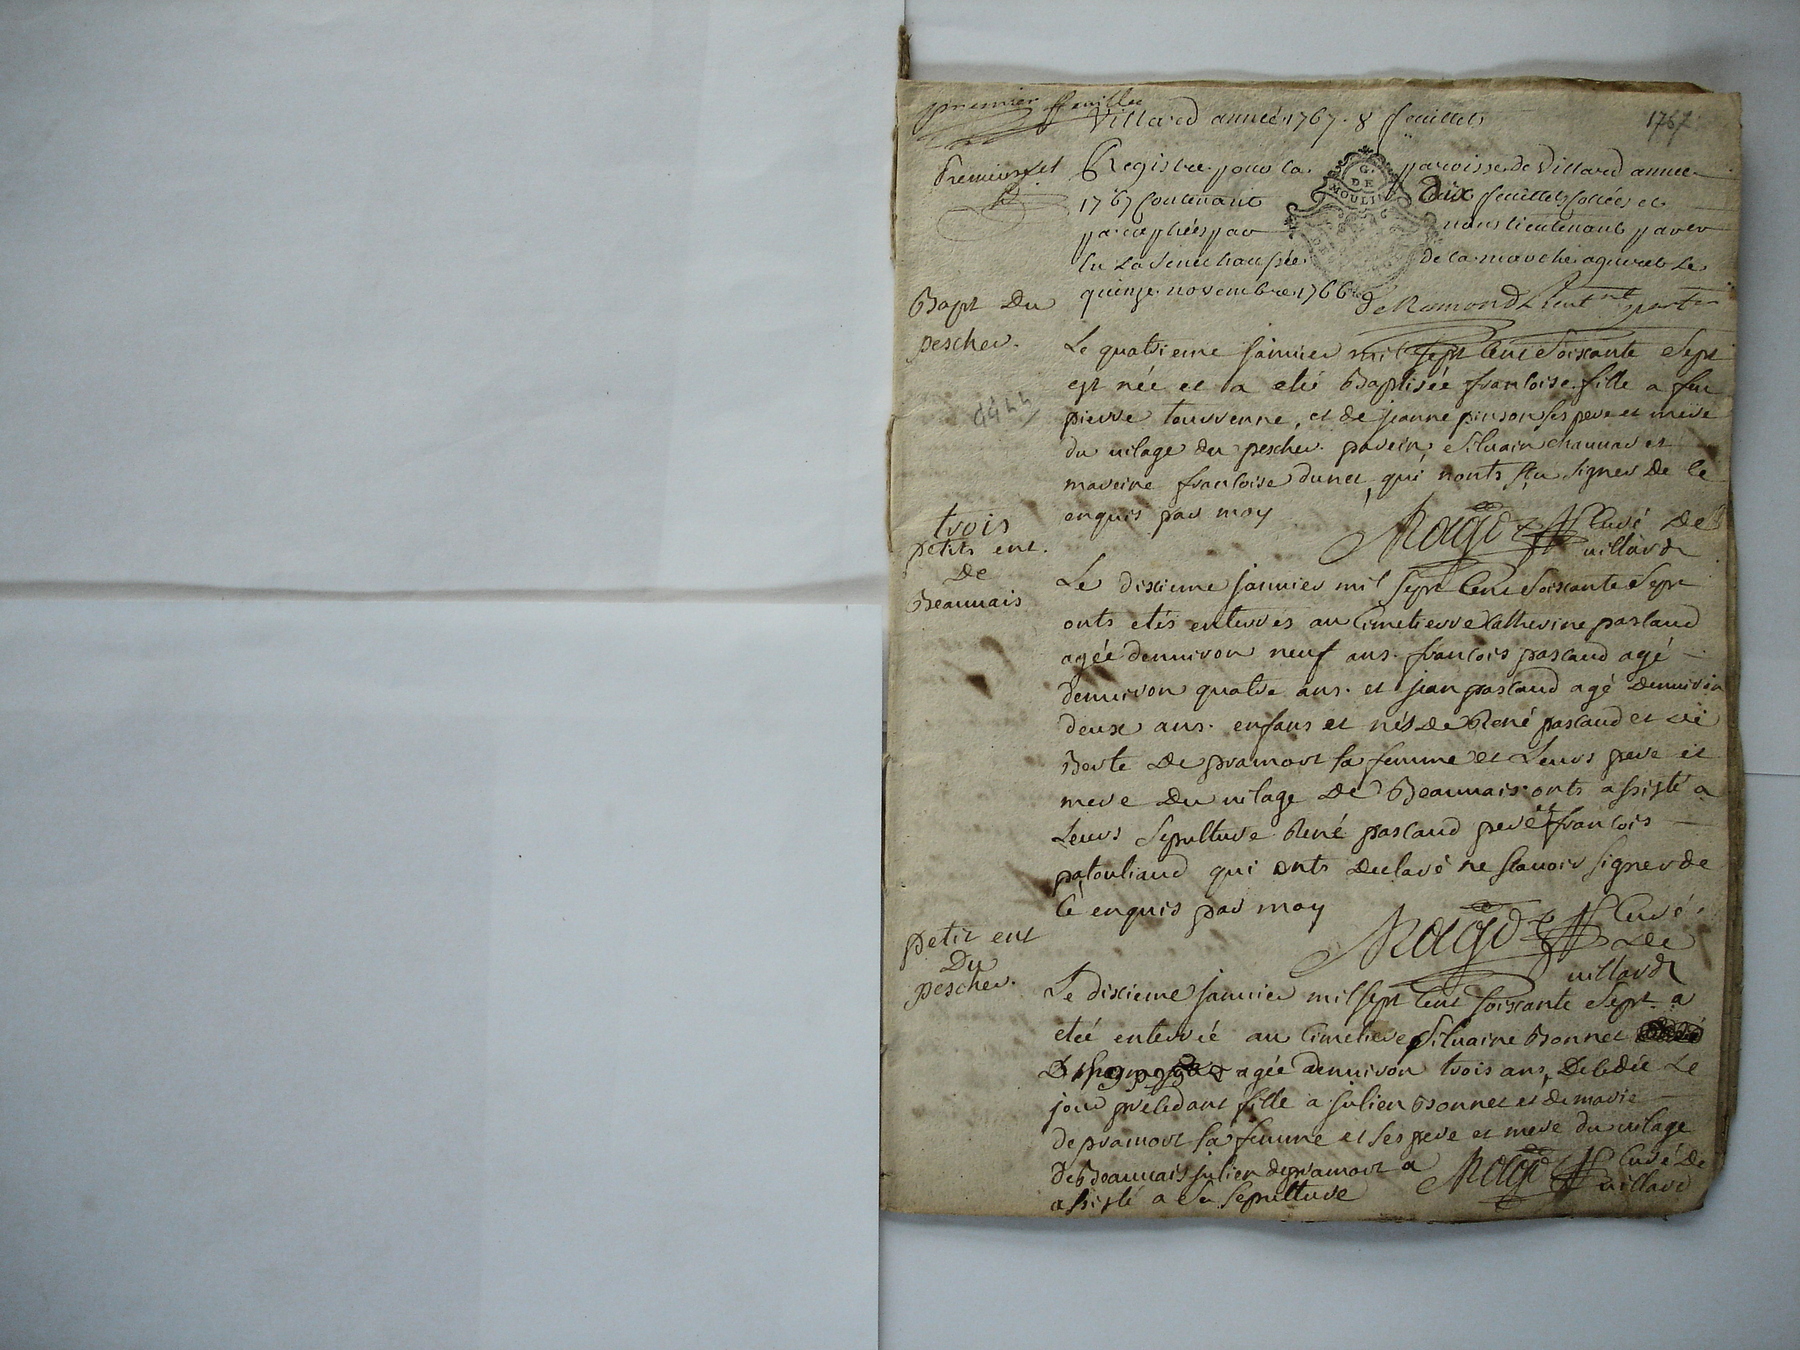 premier feuillet
Villard année 1767. 8 feuillets
1767
Premier flet
Registre pour la paroisse de Villard année
1767 Contenant Dix feuillets Cottées et
G.
DE
MOULINS
paraphées par nous lieutenant parer
lu La Senechaussée de la marche a gueret Le
quinze novembre 1766
deRomond Lieutnt parter
Bapt Du
pescher.
Le quatrieme janvier mil sept Cent Soixante Sept
est née et a eté Baptisée francoise fille a feu
pierre tourrenne, et de jeanne pinson ses pere et mere
du vilage du pescher. parein, Siluain chaunavet
mareine francoise dunet, qui nonts scu signer de ce
enquis par moy
Curé De
uillard
trois
petits ent.
De
Beauuais
Le dixieme janvier mil Sept Cent Soixante Sept
onts etés enterrés au Cimetierre Catherine pasCaud
agée denuiron neuf ans. francois pascaud agé
denuiron quatre ans. et jean pascaud agé denuiron
deux ans. enfans et nés De René pascaud et
Berte De pramort sa femme et Leurs pere et
mere Du vilage De Beauuais. onts assisté a
Leurs Sepulture René pascaud pere et francois
patouliaud qui onts Declaré ne scauoir signer de
Cé enquis par moy
Curé
De
uillard
petit ent
Du
pescher.
Le dixieme janvier mil sept Cent soixante Sept a
eteé enterrée au Cimetiere Siluaine Bonnet
agée denuiron trois ans, Decedée Le
jour preCedant fille a julien Bonnet et de marie
de pramort sa femme et ses pere et mere du vilage
De Beauuais julien depramort a
assisté a sa Sepulture
Curé De
uillard